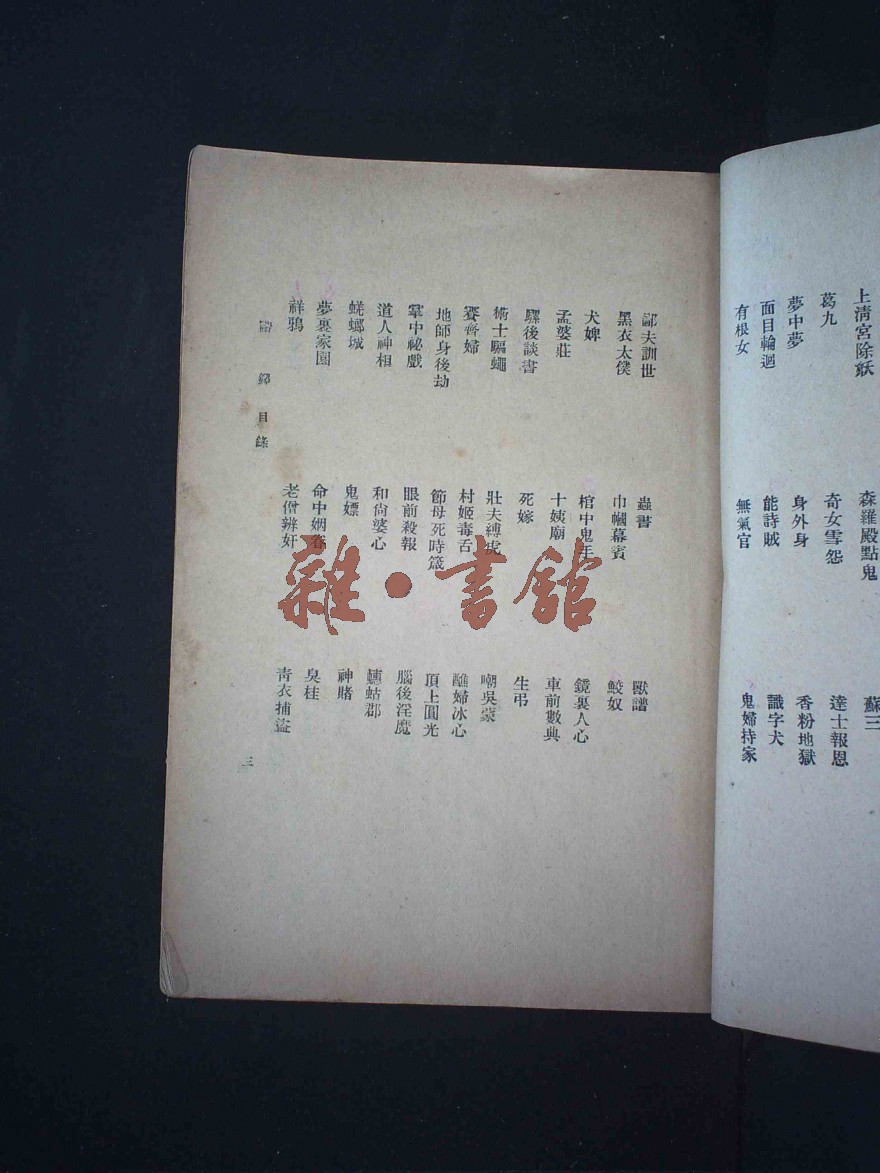 上淸宮除妖
森羅殿點鬼
蘇三
葛九
奇女雪怨
達士報恩
夢中夢
身外身
香粉地獄
面目輪迴
能詩賊
識字犬
有根女
無氣官
鬼婦持家
鄙夫訓世
蟲書
獸譜
黑衣太僕
巾幗幕賓
鮫奴
犬婢
棺中鬼手
鏡裏人心
孟婆莊
十姨廟
車前數典
驛後談書
死嫁
生弔
術士驅蠅
壯夫縛虎
嘲吳蒙
賽齊婦
村姬毒舌
醮婦冰心
地師身後劫
節母死時箴
頂上圓光
掌中祕戲
眼前殺報
腦後淫魔
道人神相
和尙婆心
蟪蛄郡
蜣螂城
鬼嫖
神賭
夢裏家園
命中姻眷
臭桂
祥鴉
老僧辨奸
靑衣捕盜
鐸目錄
三
雜·書館